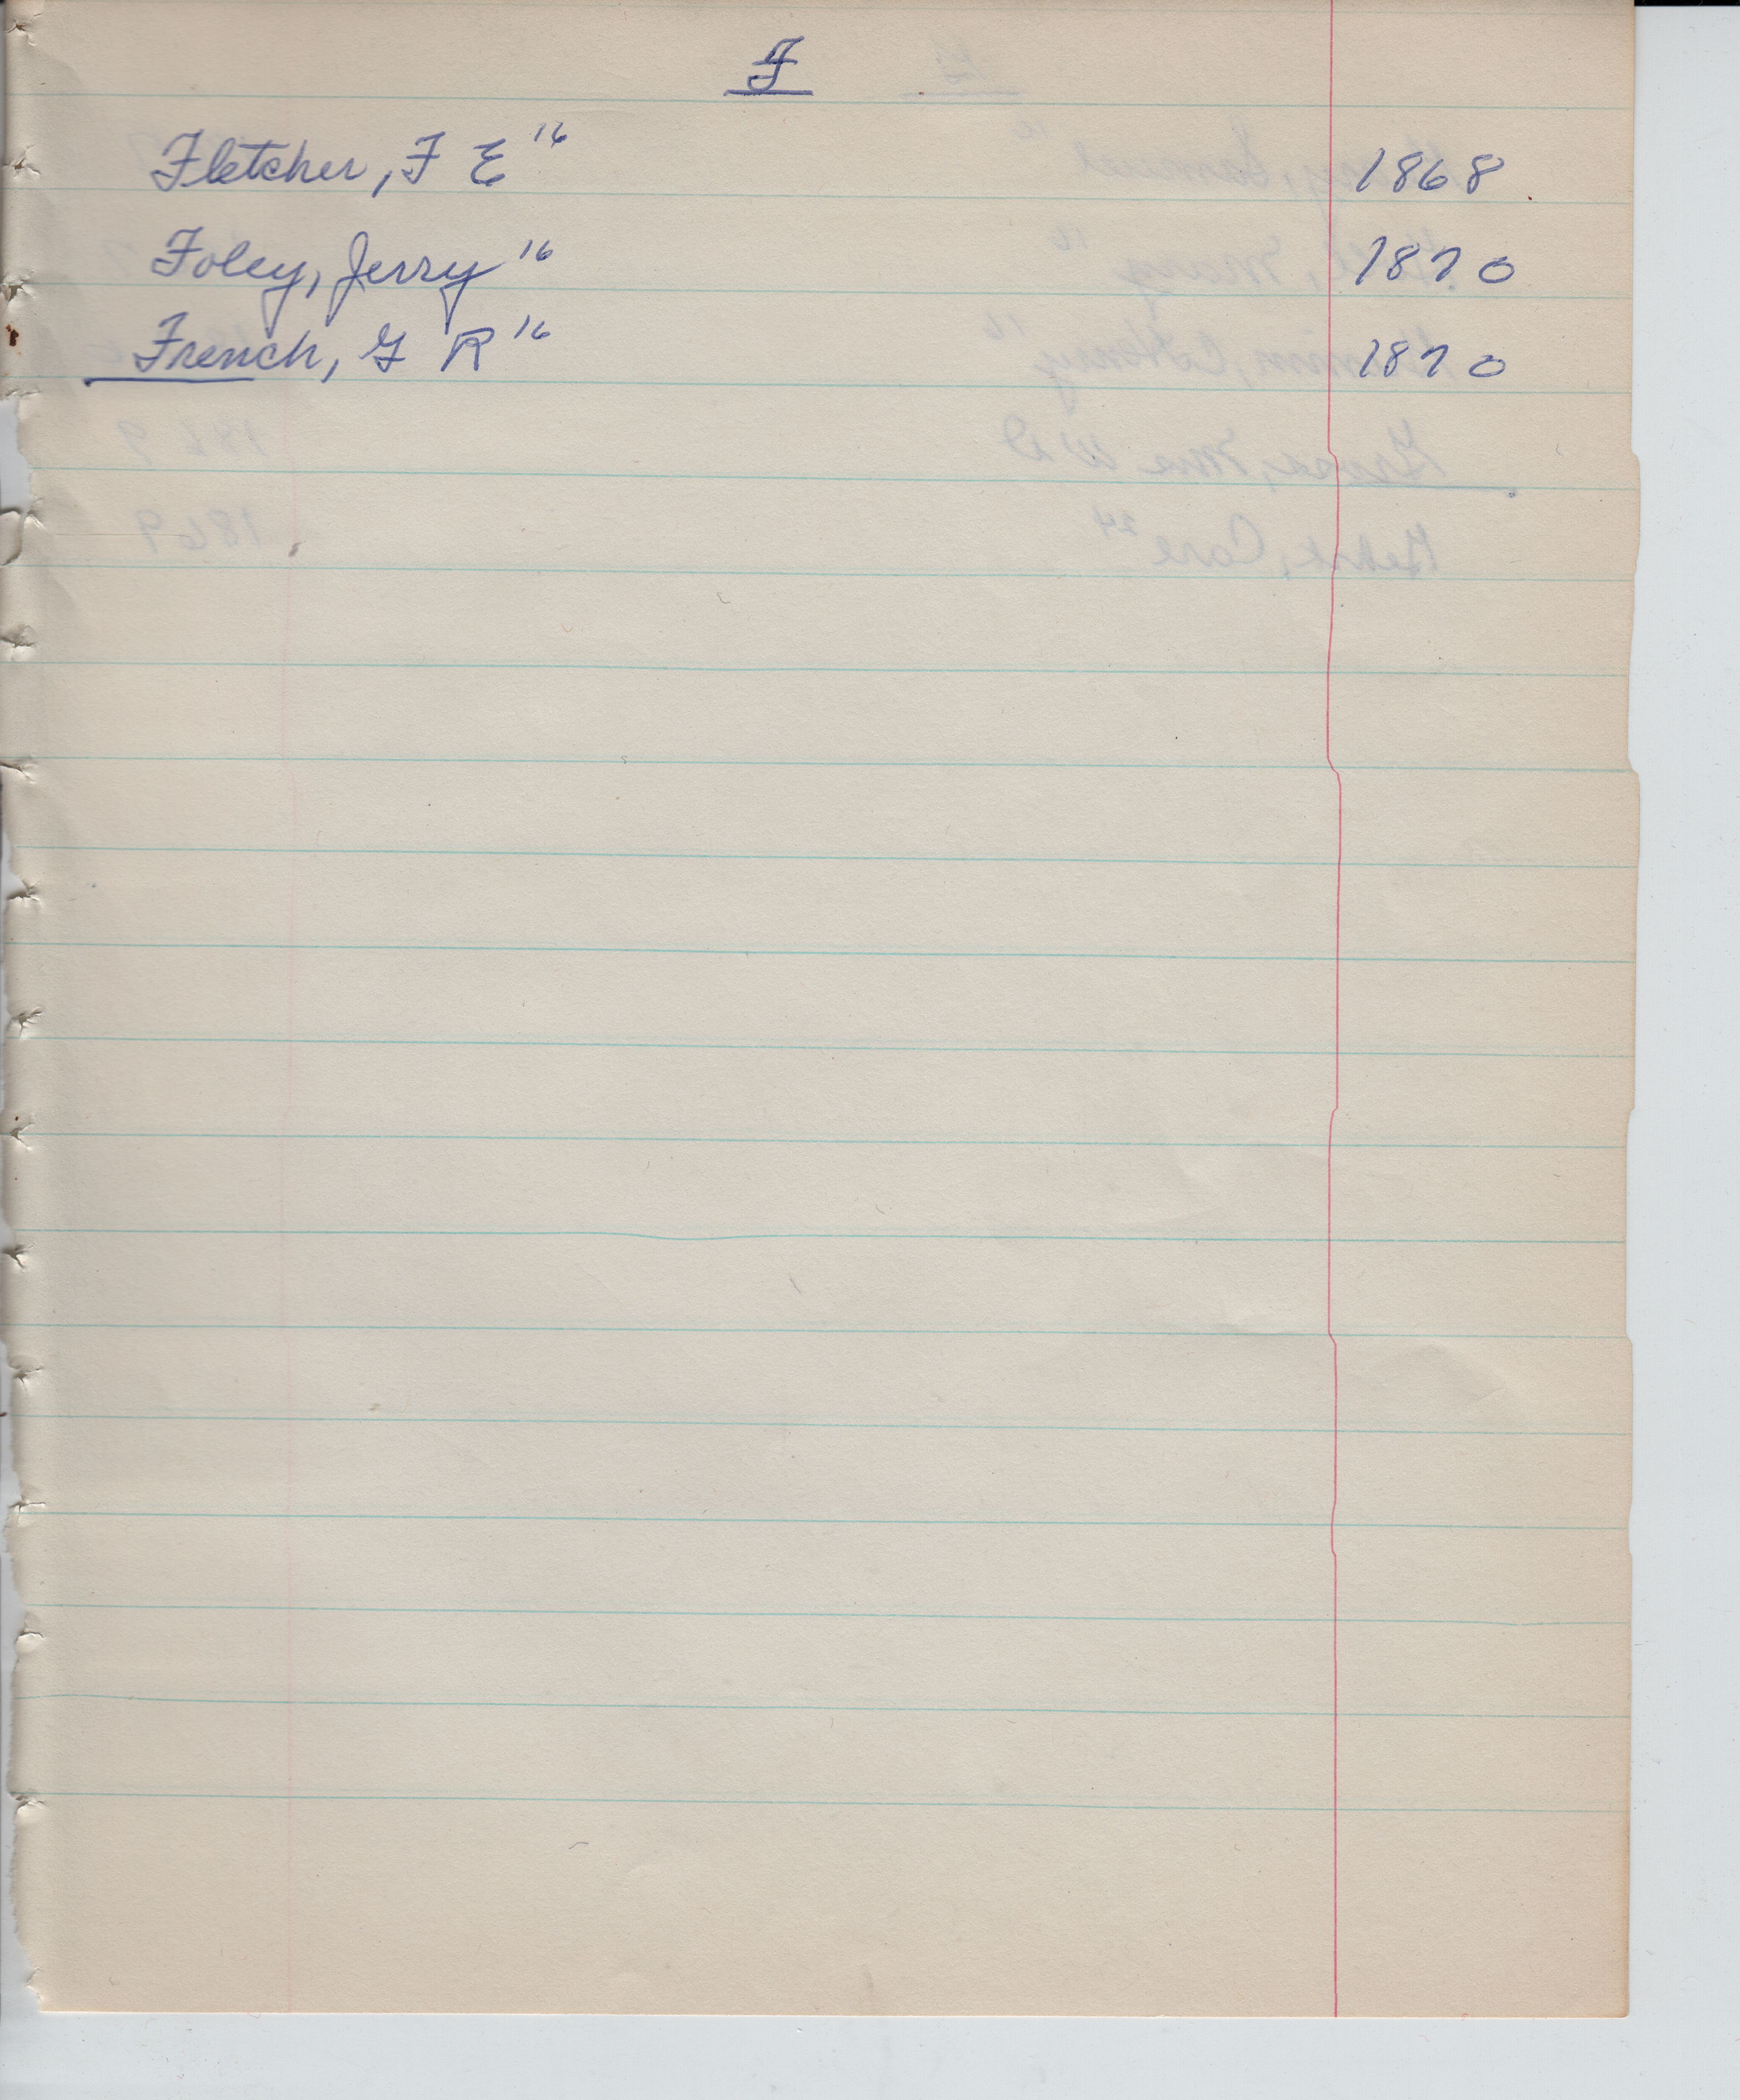 F
Fletcher, F E 16 1868
Foley, Jerry 16 1870
French, G R 16 1870